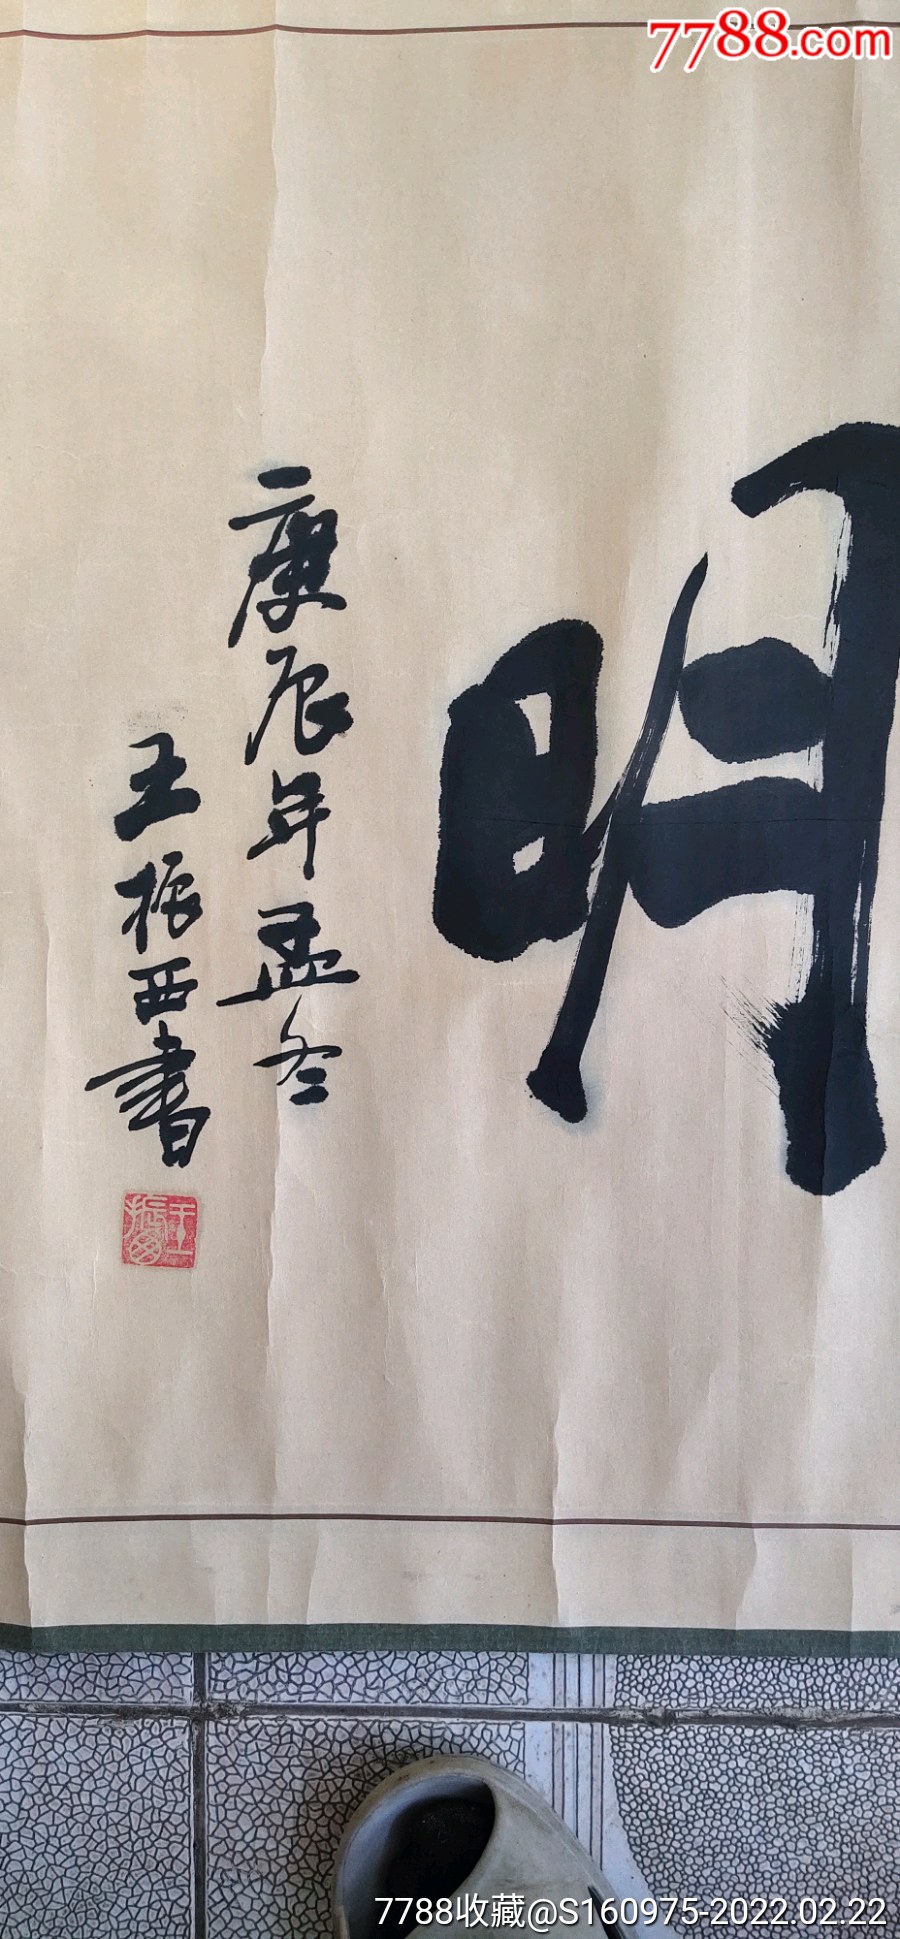 7788.com
明
庚辰年孟冬
王振西書
7788收藏@S160975-2022.02.22